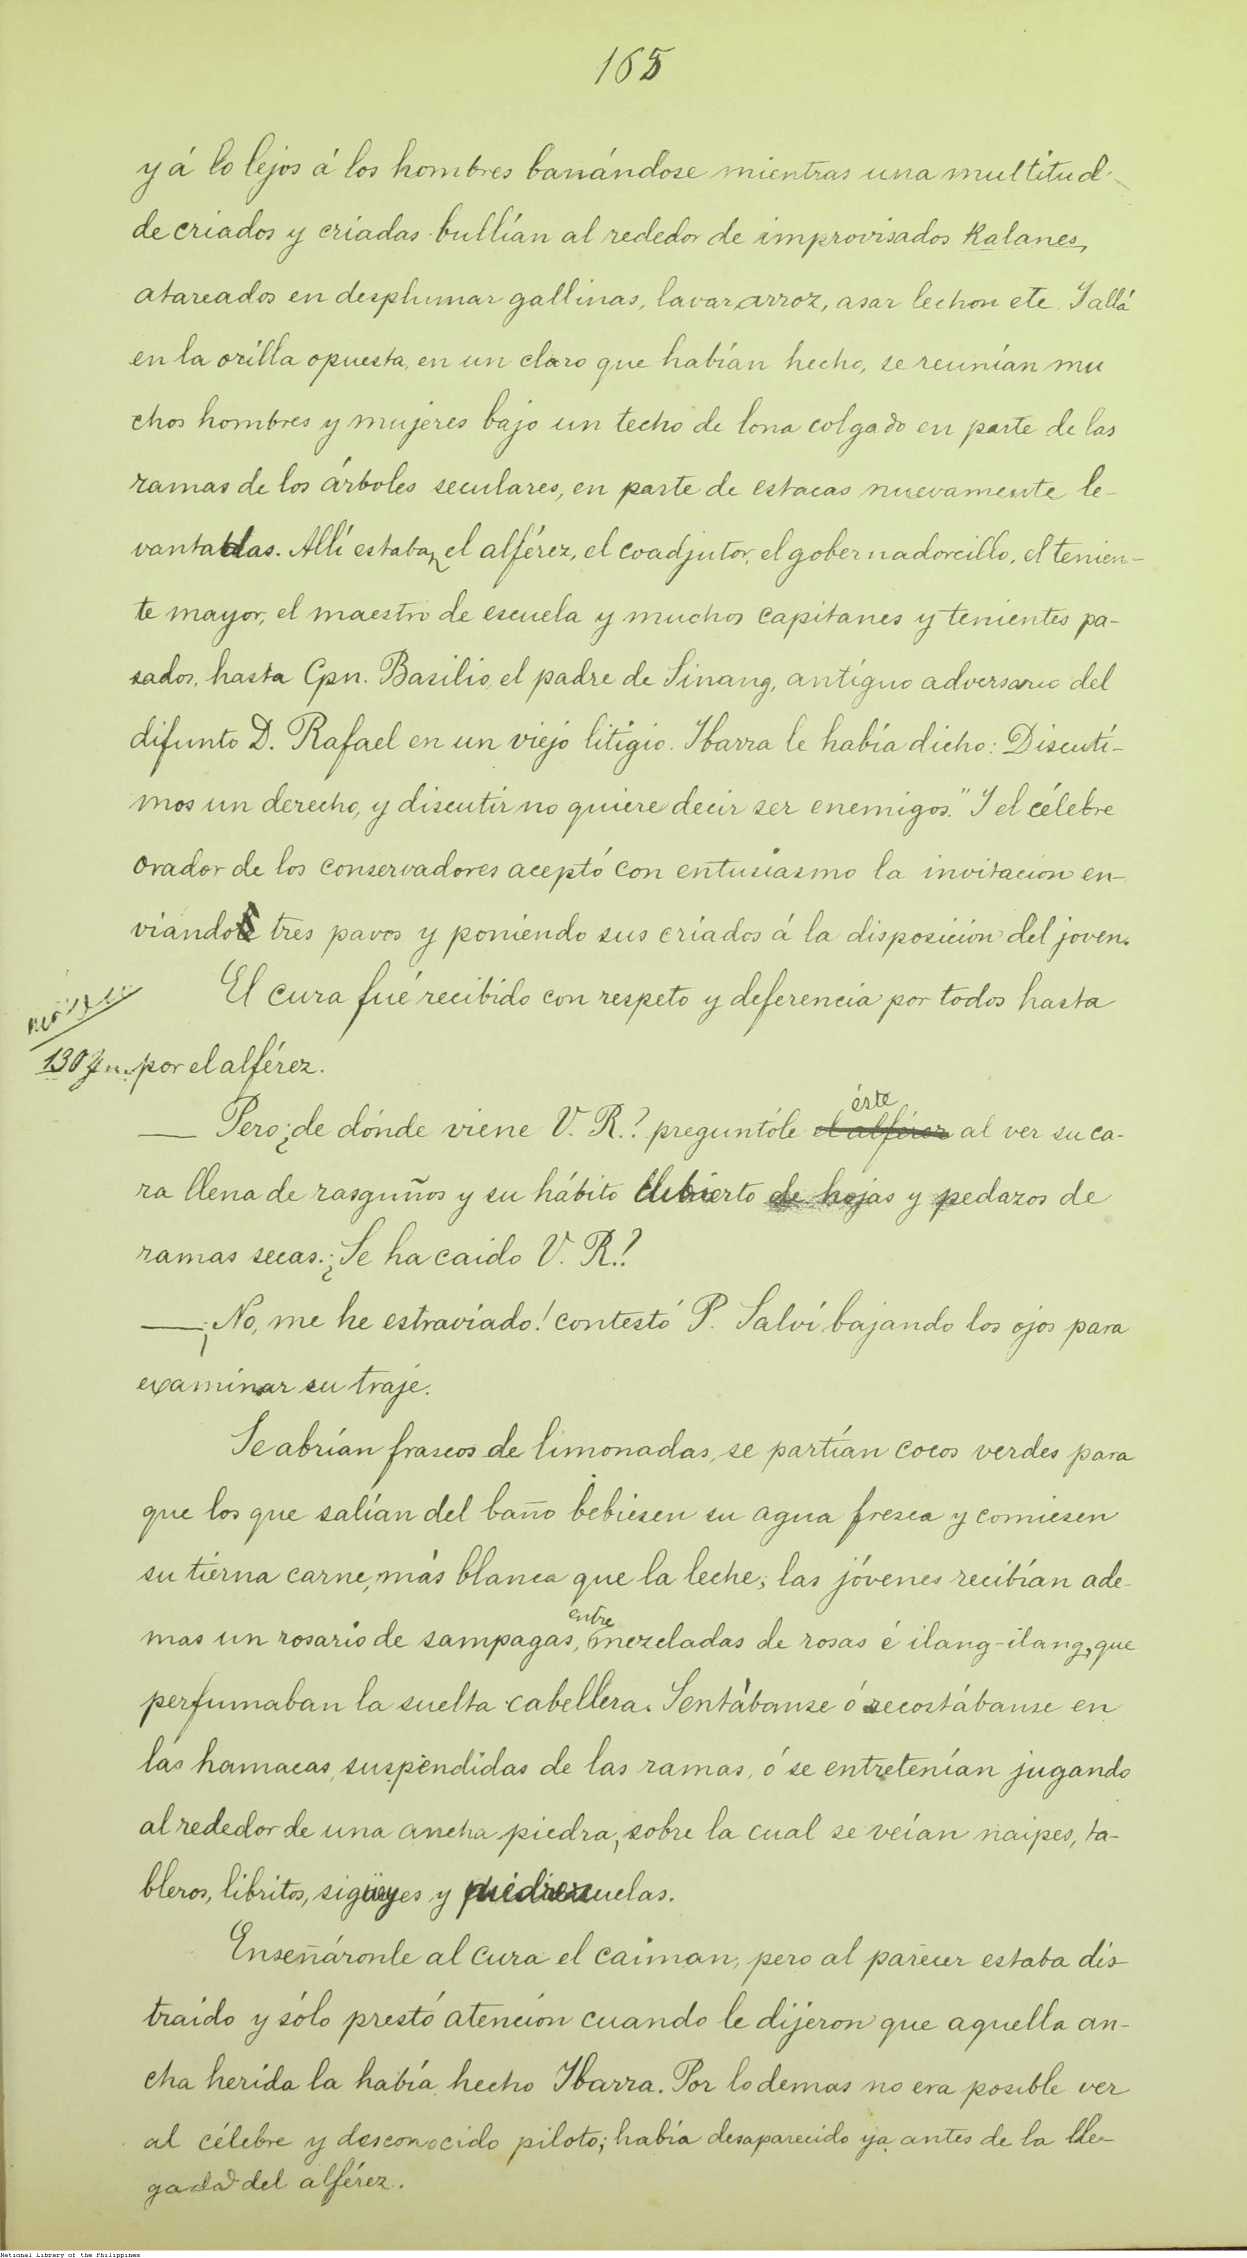 165
y á lo lejos á los hombres banándose mientras una multitud
de criados y criadas bullían al rededor de improvisados Kalanes,
atareados en desplumar gallinas, lavar arroz, asar lechon etc. Y allá
en la orilla opuesta, en un claro que habían hecho, se reunían mu
chos hombres y mujeres bajo un techo de lona colgado en parte de las
ramas de los árboles seculares, en parte de estacas nuevamente le-
vantadas. Allí estaban el alférez, el coadjutor, el gobernadorcillo, el tenien-
te mayor, el maestro de escuela y muchos capitanes y tenientes pa-
sados, hasta Cpn. Basilio, el padre de Sinang, antíguo adversario del
difunto D. Rafael en un viejo litigio. Ibarra le había dicho: Discutí-
mos un derecho, y discutir no quiere decir ser enemigos." Y el célebre
orador de los conservadores aceptó con entusiasmo la invitacion en-
viando tres pavos y poniendo sus criados á la disposición del joven.
El cura fué recibido con respeto y deferencia por todos hasta
130 por el alférez.
— Pero ¿de dónde viene V. R.? preguntóle el alférez éste al ver su ca-
ra llena de rasguños y su hábito cubierto de hojas y pedazos de
ramas secas. ¿Se ha caido V. R.?
— ¡No, me he estraviado! contestó P. Salví bajando los ojos para
examinar su traje.
Se abrían frascos de limonadas, se partían cocos verdes para
que los que salían del baño bebiesen su agua fresca y comiesen
su tierna carne, más blanca que la leche; las jóvenes recibían ade-
mas un rosario de sampagas, entremezcladas de rosas é ilang-ilang, que
perfumaban la suelta cabellera. Sentábanse ó recostábanse en
las hamacas suspendidas de las ramas, ó se entretenían jugando
al rededor de una ancha piedra, sobre la cual se veían naipes, ta-
bleros, libritos, sigüeyes y piedrezuelas.
Enseñáronle al cura el caiman, pero al parecer estaba dis-
traido y sólo prestó atención cuando le dijeron que aquella an-
cha herida la había hecho Ibarra. Por lo demas no era posible ver
al célebre y desconocido piloto; había desaparecido ya antes de la lle-
gada del alférez.
National Library of the Philippines